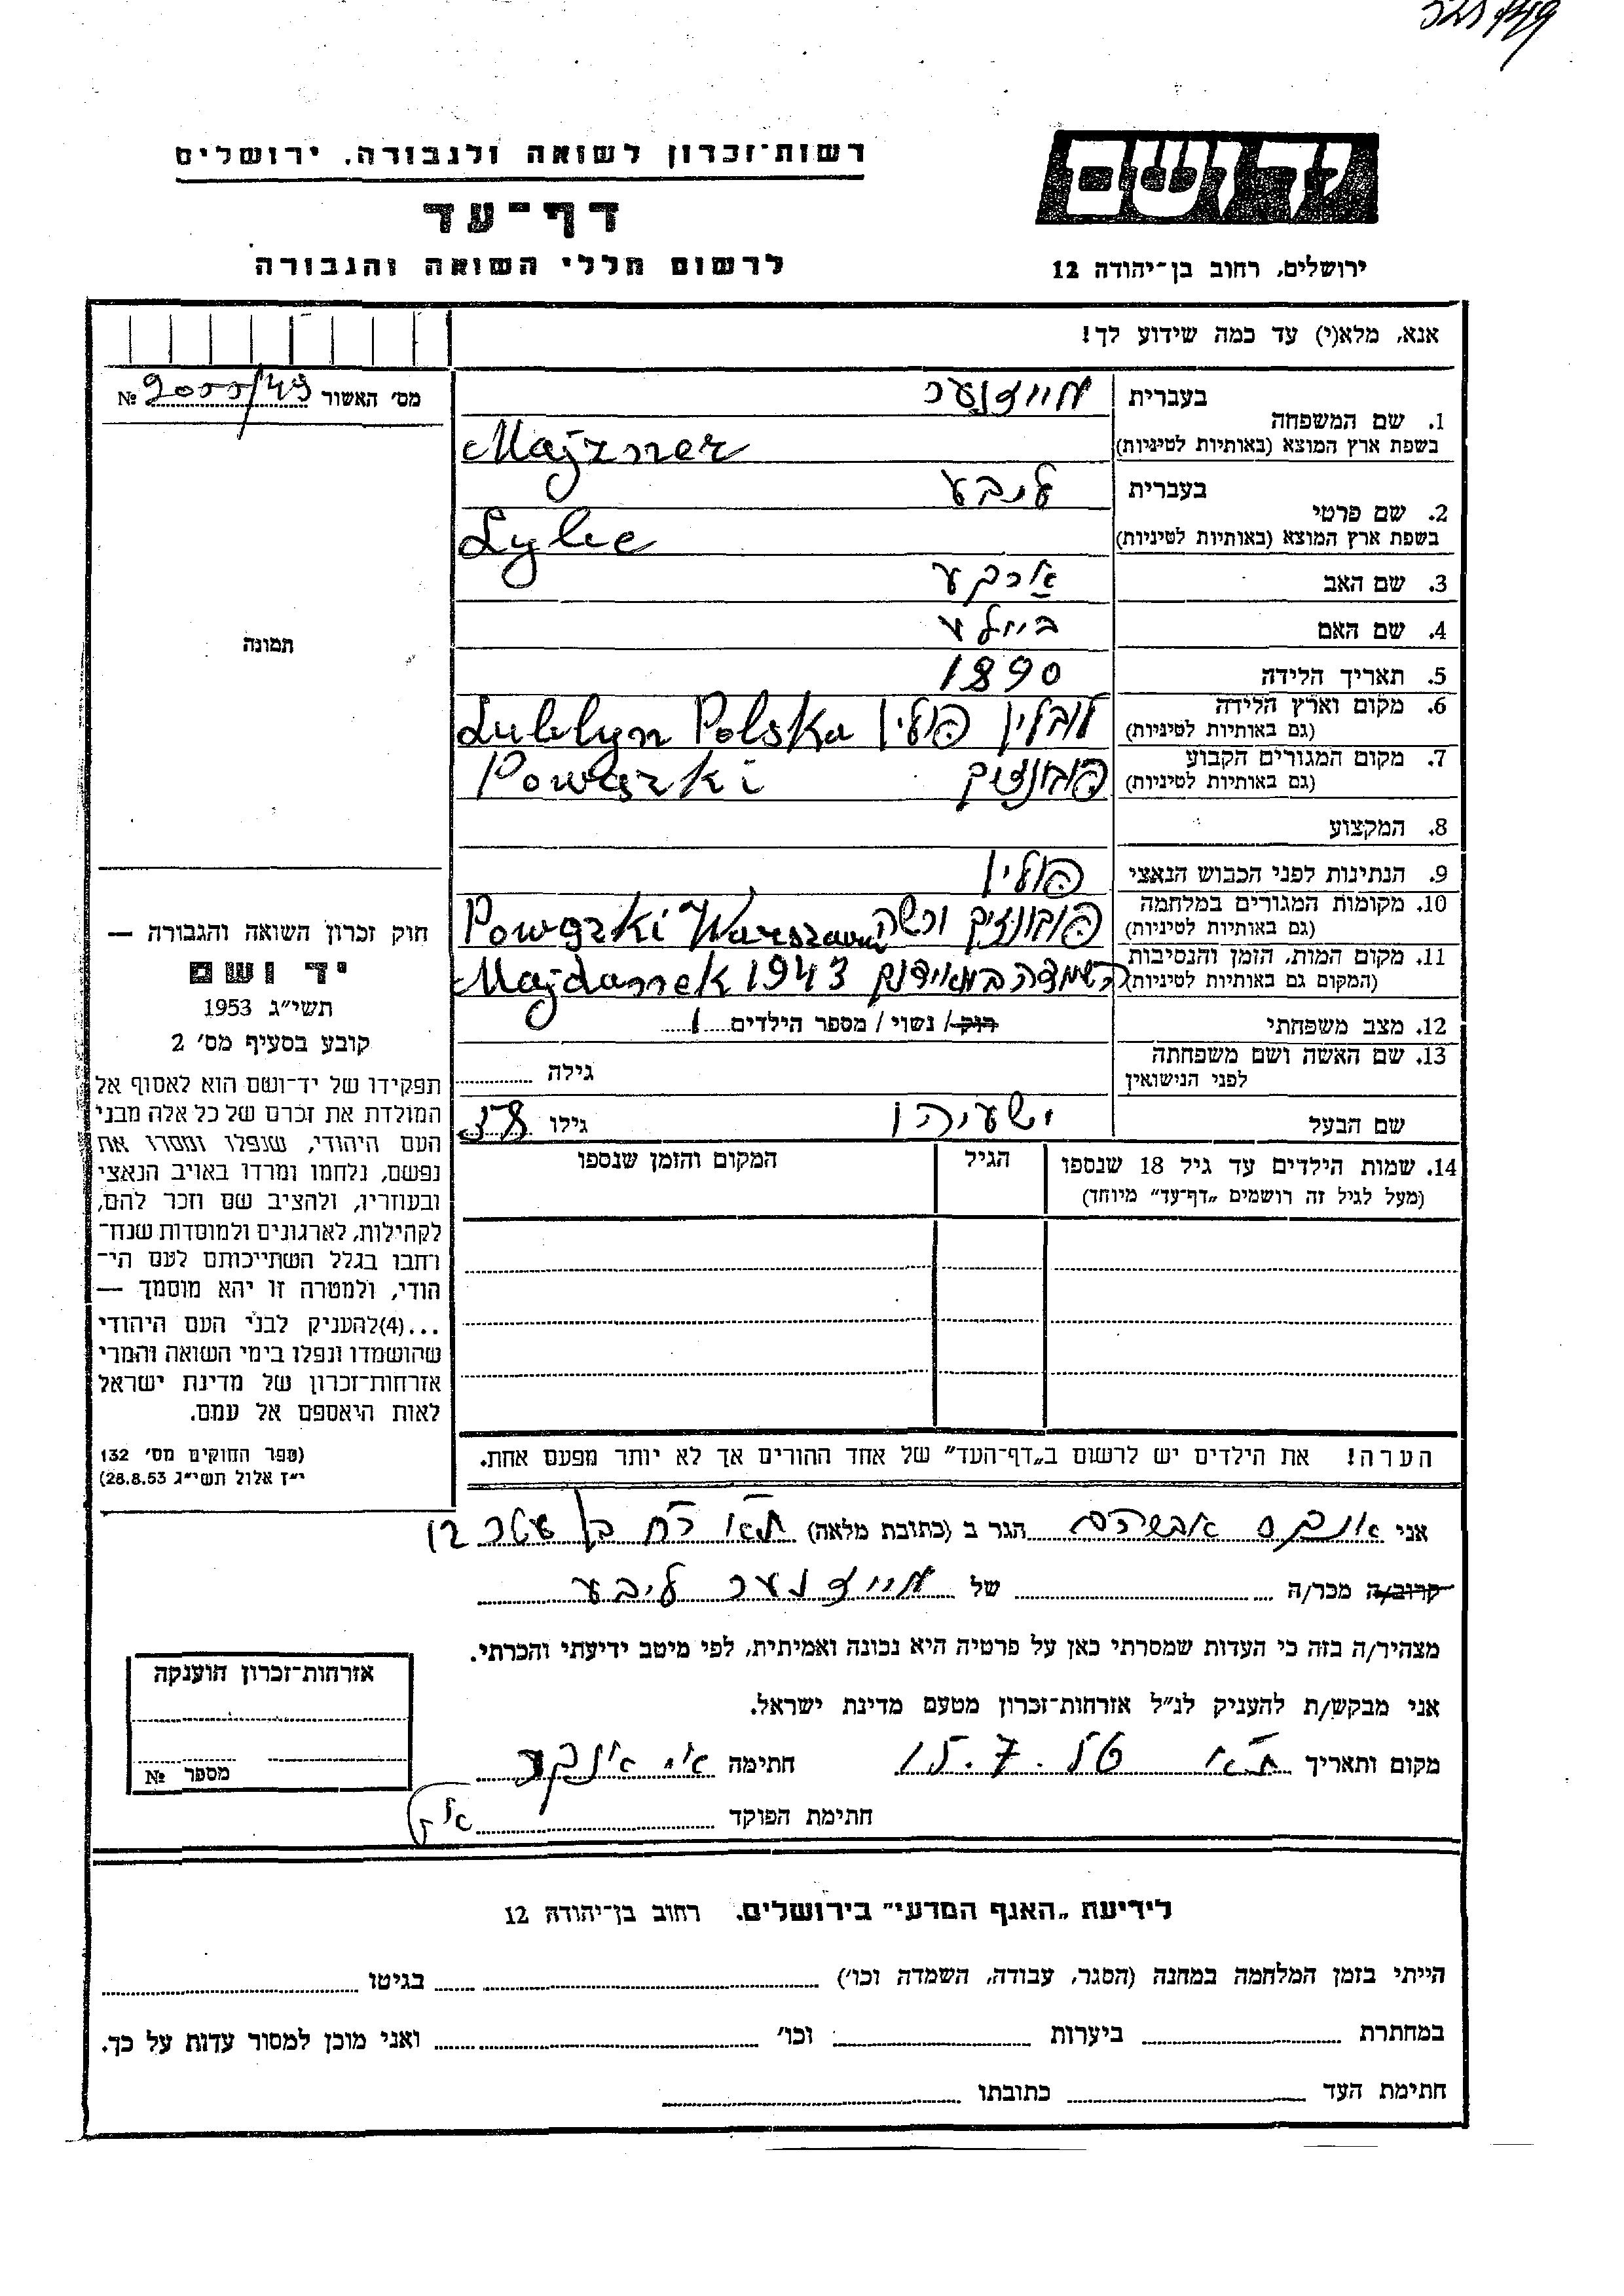 רשות־זכרון לשואה ולגבורה, ירושלים
דף־עד
לרשום חללי השואה והגבורה
יד ושם
ירושלים, רחוב בן־יהודה 12
אנא, מלא(י) עד כמה שידוע לך!
מס׳ האשור № 2055/49
1. שם המשפחה בעברית מייזנער
בשפת ארץ המוצא (באותיות לטיניות) Majzner
2. שם פרטי בעברית ליבע
בשפת ארץ המוצא (באותיות לטיניות) Lybe
3. שם האב
4. שם האם ביילע
5. תאריך הלידה 1890
6. מקום וארץ הלידה לובלין פולין Lublyn Polska
(גם באותיות לטיניות)
7. מקום המגורים הקבוע Powązki
(גם באותיות לטיניות)
8. המקצוע
9. הנתינות לפני הכבוש הנאצי פולין
10. מקומות המגורים במלחמה ורשה Powązki Warszawa
(גם באותיות לטיניות)
11. מקום המות, הזמן והנסיבות השמדה Majdannek 1943
(המקום גם באותיות לטיניות)
12. מצב משפחתי רווק / נשוי / מספר הילדים 1
13. שם האשה ושם משפחתה גילה
לפני הנישואין
שם הבעל ישעיהו גילו 58
14. שמות הילדים עד גיל 18 שנספו הגיל המקום והזמן שנספו
(מעל לגיל זה רושמים „דף־עד״ מיוחד)
הערה! את הילדים יש לרשום ב„דף־העד״ של אחד ההורים אך לא יותר מפעם אחת.
תמונה
חוק זכרון השואה והגבורה —
יד ושם
תשי״ג 1953
קובע בסעיף מס׳ 2
תפקידו של יד־ושם הוא לאסוף אל
המולדת את זכרם של כל אלה מבני
העם היהודי, שנפלו ומסרו את
נפשם, נלחמו ומרדו באויב הנאצי
ובעוזריו, ולהציב שם וזכר להם,
לקהילות, לארגונים ולמוסדות שנח־
רחבו בגלל השתייכותם לעם הי־
הודי, ולמטרה זו יהא מוסמך —
...(4) להעניק לבני העם היהודי
שהושמדו ונפלו בימי השואה והמרי
אזרחות־זכרון של מדינת ישראל
לאות היאספם אל עמם.
(ספר החוקים מס׳ 132
י״ז אלול תשי״ג 28.8.53)
אני אברהם הגר ב (כתובת מלאה) ת״א רח בן 12
קרוב/ה מכר/ה של מייזנער ליבע
מצהיר/ה בזה כי העדות שמסרתי כאן על פרטיה היא נכונה ואמיתית, לפי מיטב ידיעתי והכרתי.
אני מבקש/ת להעניק לנ״ל אזרחות־זכרון מטעם מדינת ישראל.
מקום ותאריך ת״א 15.7. חתימה
חתימת הפוקד
אזרחות־זכרון הוענקה
מספר №
לידיעת „האגף המדעי״ בירושלים, רחוב בן־יהודה 12
הייתי בזמן המלחמה במחנה (הסגר, עבודה, השמדה וכו׳) בגיטו
במחתרת ביערות וכו׳ ואני מוכן למסור עדות על כך.
חתימת העד כתובתו